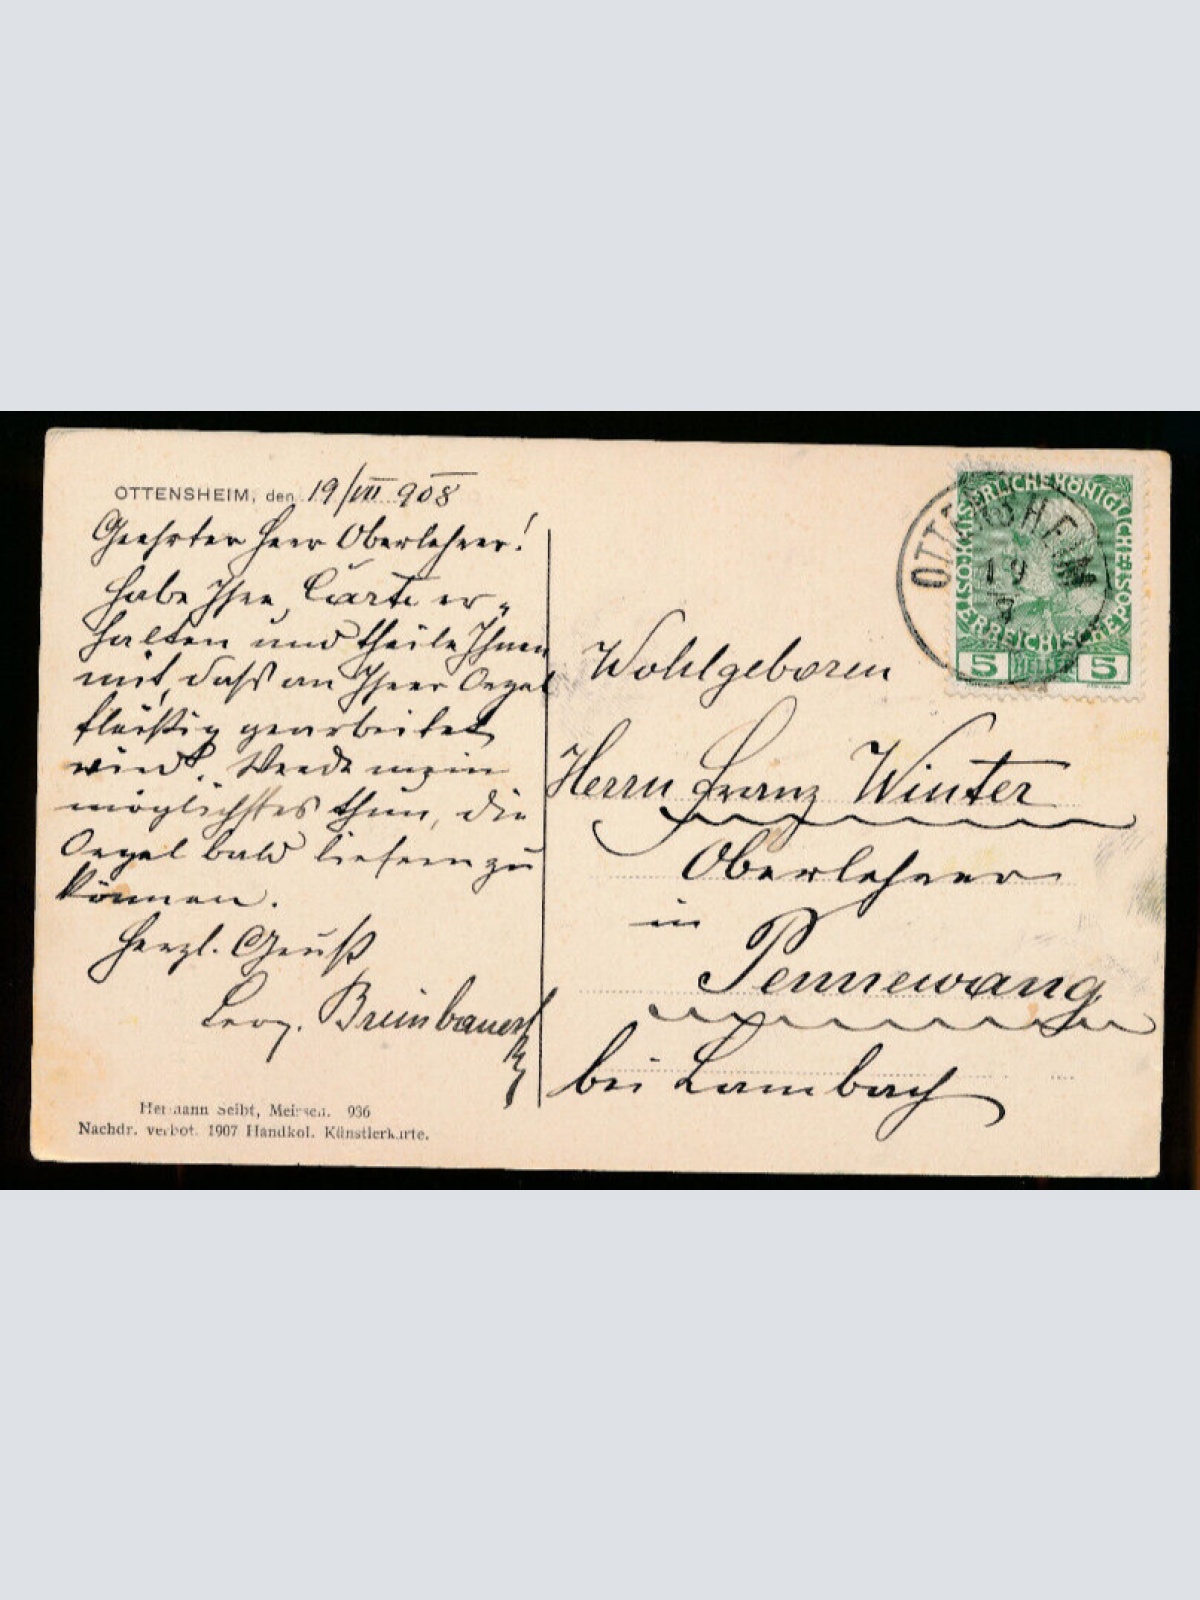 OTTENSHEIM, den 19/VIII 908
Geehrter Herr Oberlehrer!
Habe Ihre Carte er-
halten und theile Ihnen
mit, daß an Ihrer Orgel
fleißig gearbeitet
wird. Werde mein
möglichstes thun, die
Orgel bald liefern zu
können.
Herzl. Gruß
Leop. Breinbauer
Hermann Seibt, Meissen. 936
Nachdr. verbot. 1907 Handkol. Künstlerkarte.
OTTENSHEIM
19
8
KAISERLICHE KÖNIGLICHE ÖSTERREICHISCHE POST
5 HELLER 5
Wohlgeboren
Herrn Franz Winter
Oberlehrer
in
Pennewang
bei Lambach